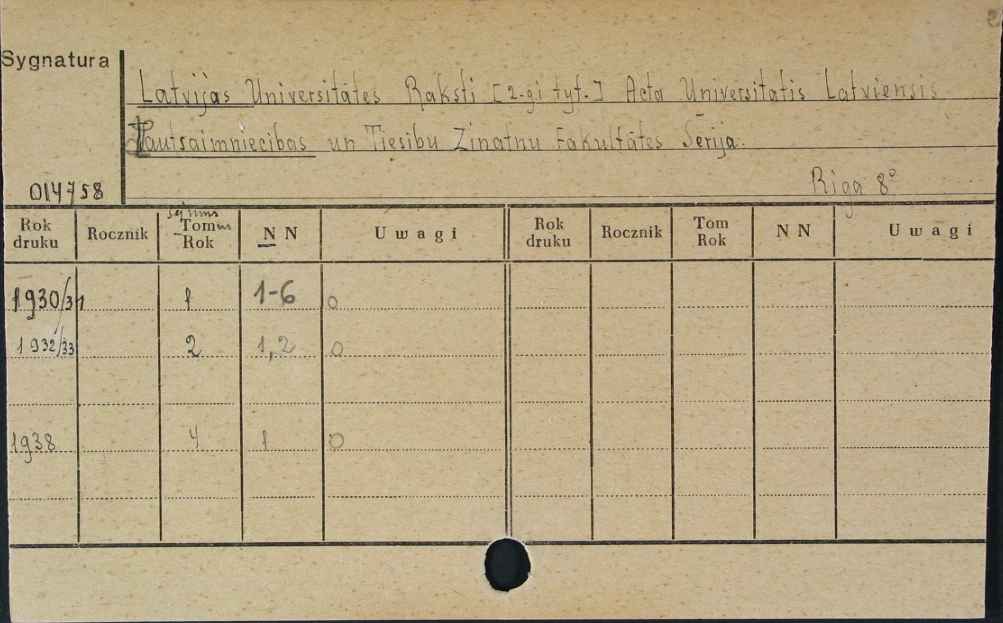 Sygnatura
Latvijas Universitātes Raksti [2-gi tyt.] Acta Universitatis Latviensis
Tautsaimniecibas un Tiesibu Zinatnu Fakultātes Serija.
014758 Riga 8°
Rok druku Rocznik Sējums Tom Rok N N Uwagi Rok druku Rocznik Tom Rok N N Uwagi
1930/31 1 1-6 o
1932/33 2 1,2 o
1938 4 1 o